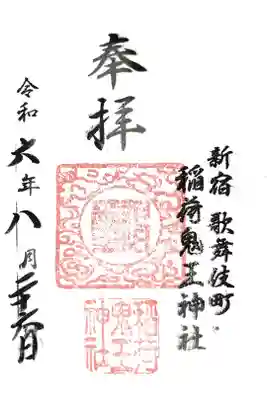 奉拝
新宿 歌舞伎町
稲荷鬼王神社
令和六年八月二十六日
稲荷
鬼王
神社